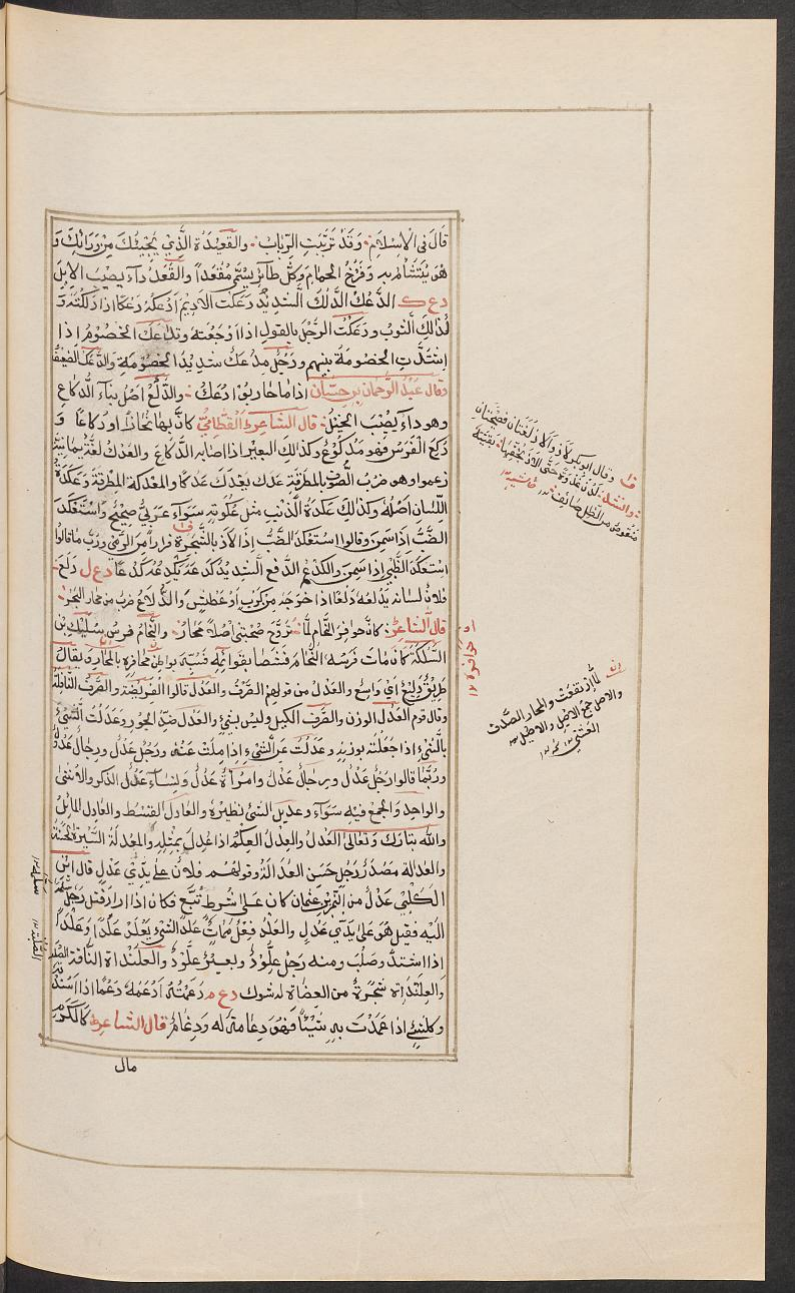 قال في الاسلام وقد تربّبت الرّباب والقعيدة الّذي يجيئك من ورائك و
هو يتشأم به وفرخ الحمام وكلّ طائر يسمّى مقعداً والقُعَدُ داء يصيب الابل
دع ك الدّعك الدّلك الشديد دعكت الاديم ادعكه دعكا اذا دلكته و
كذلك الثوب ودعكت الرّجل بالقول اذا اوجعته وتداعك الخصوم اذا
اشتدّت الخصومة بينهم ورجل مدعك شديد الخصومة والدعك الضعيف
وقال عبد الرّحمان بن حسّان اذا ما حاربوا دعك والدّكع اصل بناء الدّكاع
وهو داء يصيب الخيل قال الشاعر القطاميّ كانّ بها نحازا او دكاعا و
دكع الفرس فهو مدكوع وكذلك البعير اذا اصابه الدّكاع والعدك لغة يمانية
زعموا وهو ضرب الصّوف بالمطرقة عدك يعدك عدكا والمعدكة المطرقة وعكدة
اللّسان اصله وكذلك عكدة الذّنب مثل عكوته سواء عربيّ صحيح واستعكد
الضّبّ اذا سمن وقالوا استعكد الضّبّ اذا لاذ بالشّجرة فرارا من الرّمي وربّما قالوا
استعكد الظّبي اذا سمن والكدع الدّفع الشديد كدعه يكدعه كدعا دع ل دلع
فلان لسانه يدلعه دلعا اذا خرجه من كرب او عطش والدّلاع ضرب من محار البحر
قال الشاعر كانّ حوافر النحّام لمّا تروّح صحبتي اصلا محار والنّحام فرس سليك بن
السّلكة كان مات فرسه النّحام فشصا بقوائمه فشبّه بواطن حوافره بالمحار ويقال
طريق دليع اي واسع والعدل من قولهم الصّرف والعدل قالوا الفريضة والصّرف النّافلة
وقال قوم العدل الوزن والصّرف الكيل وليس بشيء والعدل ضدّ الجور وعدلت الشّيء
بالشّيء اذا جعلته بوزنه وعدلت عن الشّيء اذا ملت عنه ورجل عدل ورجال عدل
وربّما قالوا رجل عدل ورجال عدل وامرأة عدل ونساء عدل الذكر والانثى
والواحد والجمع فيه سواء وعديل الشئ نظيره والعادل القسط والعادل المائل
والله تبارك وتعالى العدل والعدل العكم اذا عدل بمثله والمعدلة السّيرة الحسنة
والعدالة مصدر رجل حسن العدالة وقولهم فلان على يدي عدل قال ابن
الكلبيّ عدل من كان على شرط تبّع فكان اذا اراد قتل رجل
اليه فقيل هو على يدي عدل والعلد فعل ممات علد الشيء يعلد علدا وعلدا
اذا اشتدّ وصلب ومنه رجل علّود وبعير علّود والعلنداة النّاقة الصّلبة
والعلنداة شجرة من العضاة له شوك دع م دعمته ادعمه دعما اذا اسندته
وكلّ شيء اذا عمدت به شيئا فهو دعامة له ودعام قال الشاعر كالكرم
مال
وقال ابو بكر لاذ والاذ لغتان فصيحتان
وانشد لدن غدوة حتى الاذ بخفّها بقيّة
منقوص من الظّل صائف
حوافره ١٢
لمّا ارتفعت والمحار الصّدف
والاصل جمع الاصيل والاصيل
العشيّ
الصلبة